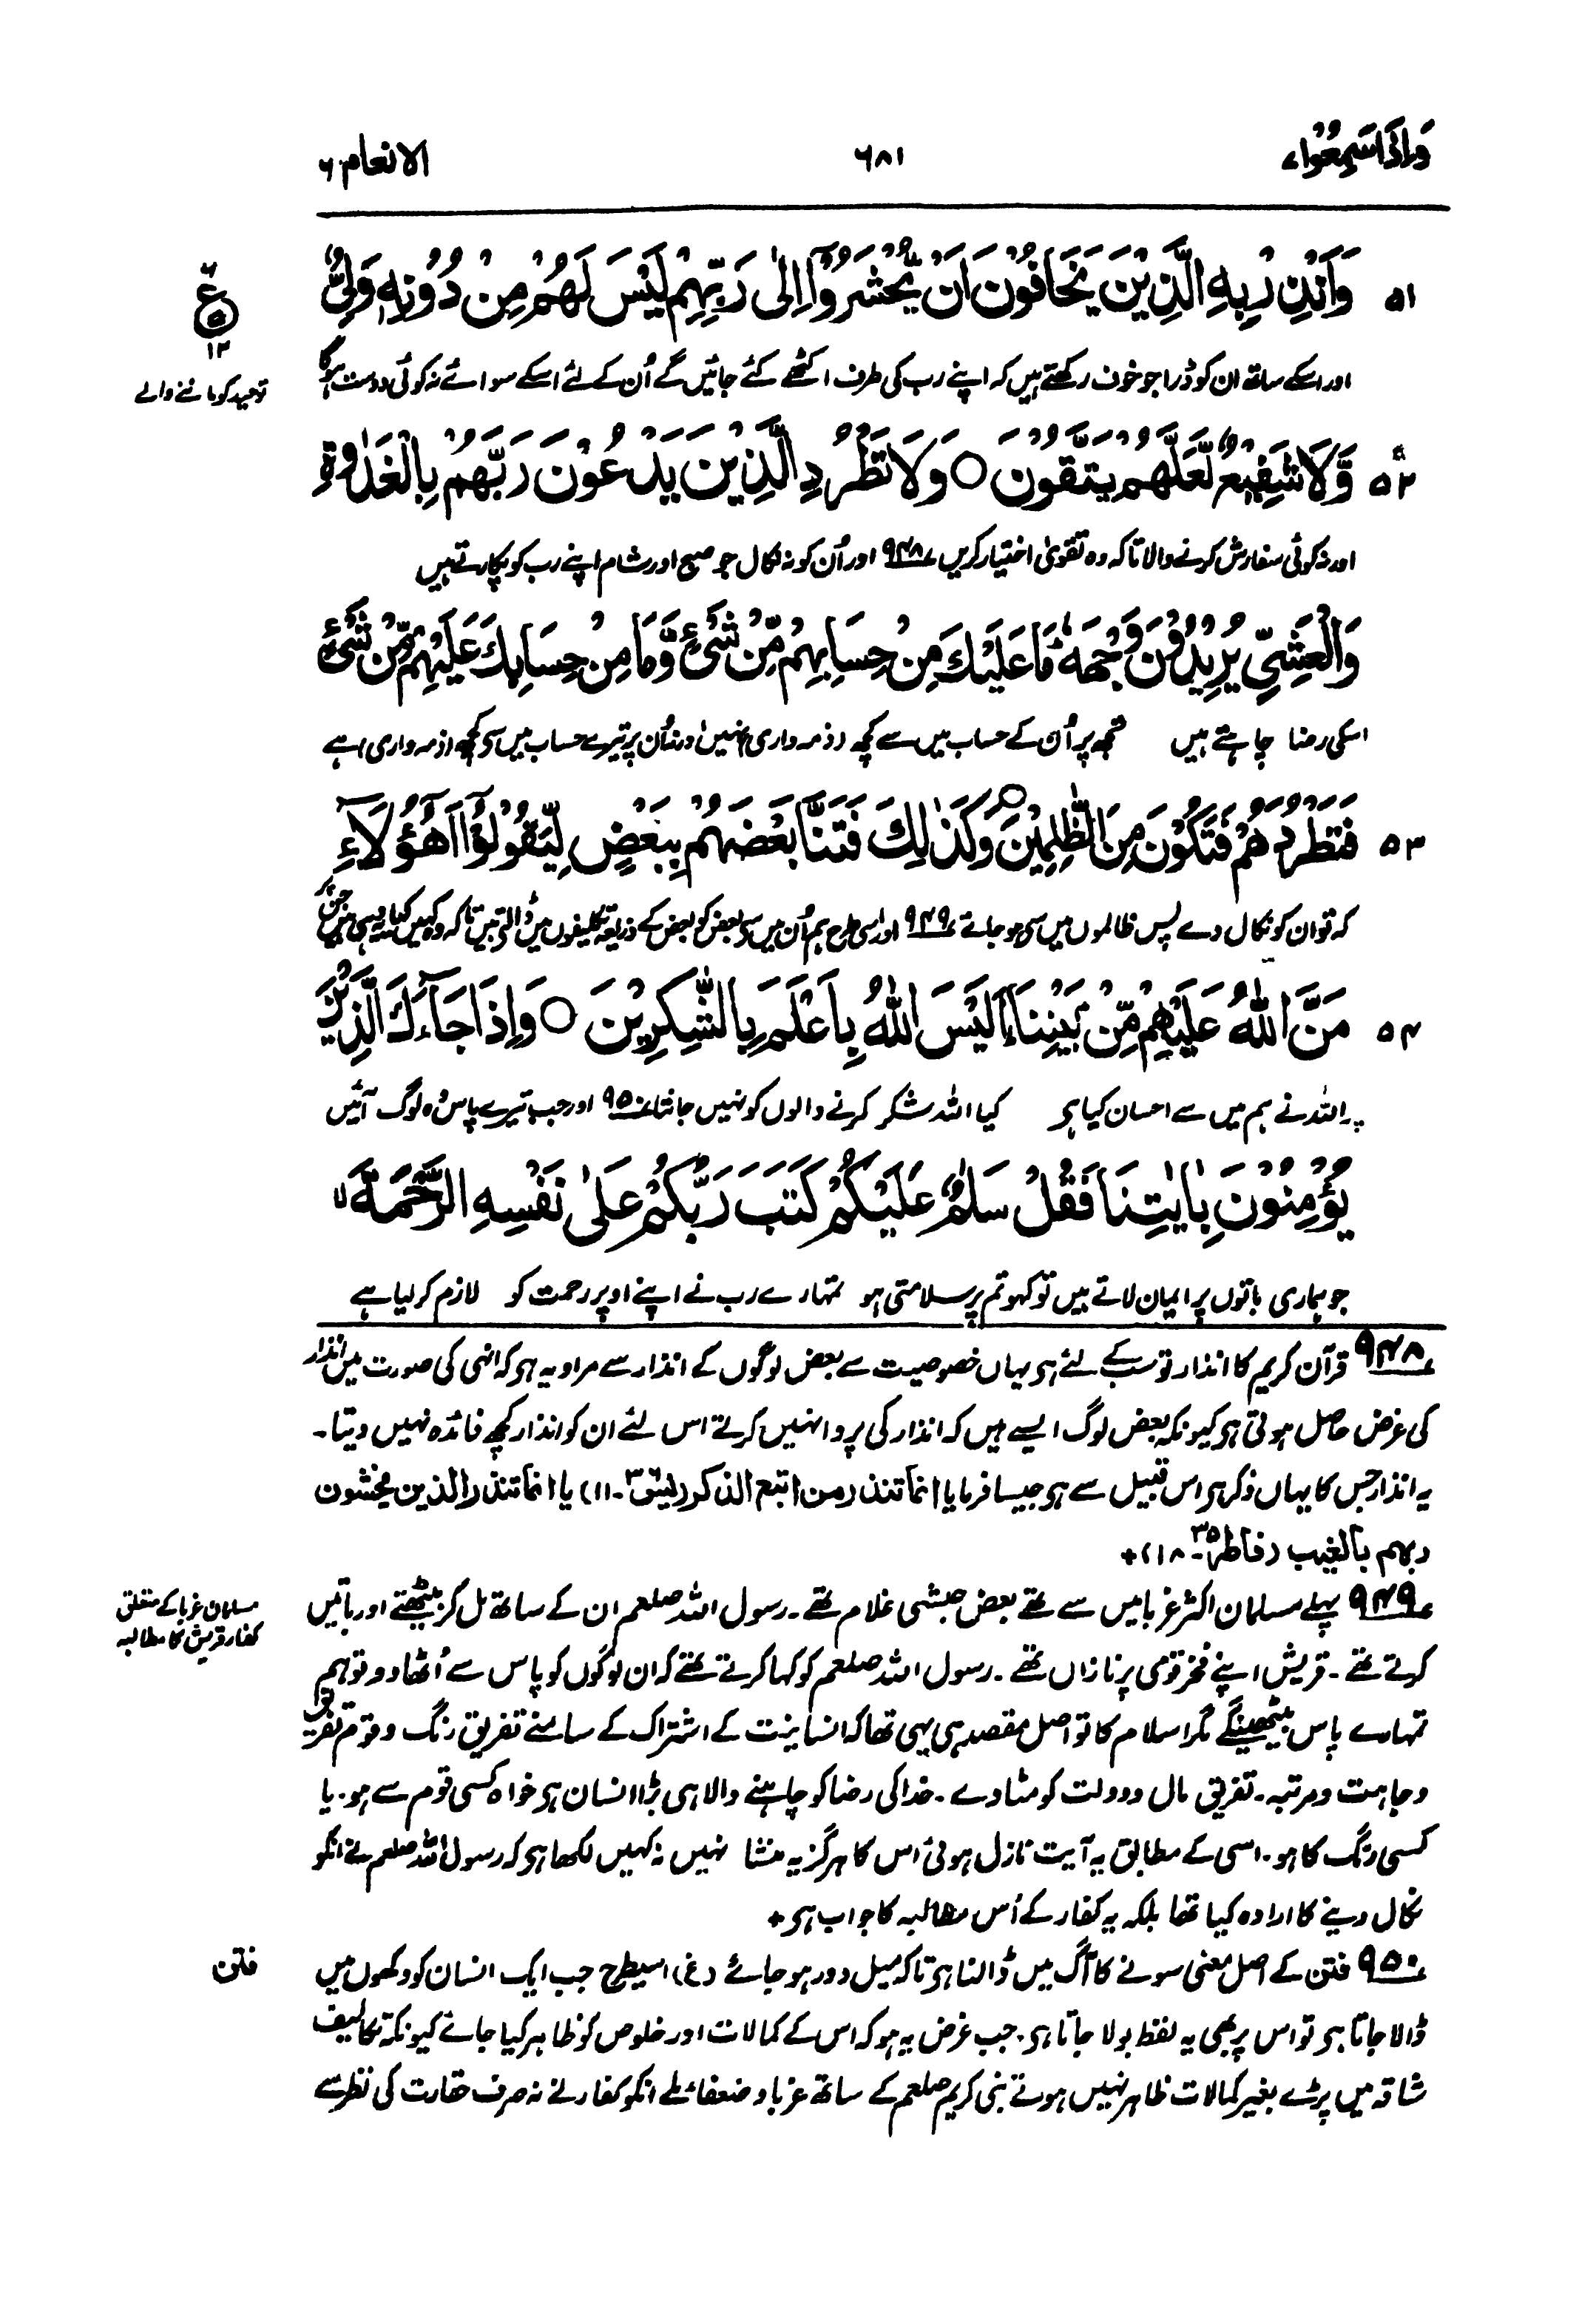 وَاِذَا سَمِعُوْا ۷
۶۸۱
الانعام ۶
۵۱ وَاَنْذِرْ بِهِ الَّذِيْنَ يَخَافُوْنَ اَنْ يُّحْشَرُوْٓا اِلٰى رَبِّهِمْ لَيْسَ لَهُمْ مِنْ دُوْنِهٖ وَلِيٌّ
ع ۵ ۱۲
اور اسکے ساتھ ان کو ڈرا جو خوف رکھتے ہیں کہ اپنے رب کی طرف اکٹھے کئے جائیں گے اُن کے لئے اسکے سوائے نہ کوئی دوست ہوگا
توحید کو ماننے والے
۵۲ وَّلَا شَفِيْعٌ لَّعَلَّهُمْ يَتَّقُوْنَ ○ وَلَا تَطْرُدِ الَّذِيْنَ يَدْعُوْنَ رَبَّهُمْ بِالْغَدٰوةِ
اور نہ کوئی سفارش کرنے والا تاکہ وہ تقویٰ اختیار کریں ۹۴۸؎ اور اُن کو نہ نکال جو صبح اور شام اپنے رب کو پکارتے ہیں
وَالْعَشِيِّ يُرِيْدُوْنَ وَجْهَهٗ ؕ مَا عَلَيْكَ مِنْ حِسَابِهِمْ مِّنْ شَيْءٍ وَّمَا مِنْ حِسَابِكَ عَلَيْهِمْ مِّنْ شَيْءٍ
اسکی رضا چاہتے ہیں تجھ پر اُن کے حساب میں سے کچھ (ذمہ داری) نہیں اور نہ اُن پر تیرے حساب میں سی کچھ (ذمہ داری) ہے
۵۳ فَتَطْرُدَهُمْ فَتَكُوْنَ مِنَ الظّٰلِمِيْنَ ○ وَكَذٰلِكَ فَتَنَّا بَعْضَهُمْ بِبَعْضٍ لِّيَقُوْلُوْٓا اَهٰٓؤُلَاءِ
کہ تو ان کو نکال دے پس ظالموں میں سی ہو جائے ۹۴۹؎ اور اسی طرح ہم اُن میں سی بعض کو بعض کے ذریعہ تکلیفوں میں ڈالتے ہیں تاکہ وہ کہیں کیا یہی ہیں جن پر
۵۴ مَنَّ اللّٰهُ عَلَيْهِمْ مِّنْ بَيْنِنَا ؕ اَلَيْسَ اللّٰهُ بِاَعْلَمَ بِالشّٰكِرِيْنَ ○ وَاِذَا جَآءَكَ الَّذِيْنَ
پر اللہ نے ہم میں سے احسان کیا ہی کیا اللہ شکر کرنے والوں کو نہیں جانتا ۹۵۰؎ اور جب تیرے پاس وہ لوگ آئیں
يُؤْمِنُوْنَ بِاٰيٰتِنَا فَقُلْ سَلٰمٌ عَلَيْكُمْ كَتَبَ رَبُّكُمْ عَلٰى نَفْسِهِ الرَّحْمَةَ ۙ
جو ہماری باتوں پر ایمان لاتے ہیں تو کہو تم پر سلامتی ہو تمہارے رب نے اپنے اوپر رحمت کو لازم کر لیا ہے
۹۴۸؎ قرآن کریم کا انذار تو سب کے لئے ہی یہاں خصوصیت سے بعض لوگوں کے انذار سے مراد یہ ہی کہ انہی کی صورت میں انذار
کی غرض حاصل ہوتی ہی کیونکہ بعض لوگ ایسے ہیں کہ انذار کی پروا نہیں کرتے اس لئے ان کو انذار کچھ فائدہ نہیں دیتا۔
یہ انذار جس کا یہاں ذکر ہی اس قبیل سے ہی جیسا فرمایا انما تنذر من اتبع الذکر (یٰسٓ ۳۶۔۱۱) یا انما تنذر الذین یخشون
ربہم بالغیب (فاطر ۳۵۔۱۸)+
۹۴۹؎ پہلے مسلمان اکثر غربا میں سے تھے بعض حبشی غلام تھے۔ رسول اللہ صلعم ان کے ساتھ مل کر بیٹھتے اور باتیں
مسلمان غربا کے متعلق
کفار قریش کا مطالبہ
کرتے تھے۔ قریش اپنے فخر قومی پر نازاں تھے۔ رسول اللہ صلعم کو کہا کرتے تھے کہ ان لوگوں کو پاس سے اُٹھا دو تو ہم
تمہارے پاس بیٹھینگے مگر اسلام کا تو اصل مقصد ہی یہی تھا کہ انسانیت کے اشتراک کے سامنے تفریق رنگ و قوم تفریق
وجاہت و مرتبہ۔ تفریق مال و دولت کو مٹا دے۔ خدا کی رضا کو چاہنے والا ہی بڑا انسان ہی خواہ کسی قوم سے ہو۔ یا
کسی رنگ کا ہو۔ اسی کے مطابق یہ آیت نازل ہوئی اس کا ہرگز یہ منشا نہیں نہ کہیں لکھا ہی کہ رسول اللہ صلعم نے انکو
نکال دینے کا ارادہ کیا تھا بلکہ یہ کفار کے اُس مطالبہ کا جواب ہی+
۹۵۰؎ فتن کے اصل معنی سونے کا آگ میں ڈالنا ہی تاکہ میل دور ہو جائے (غ) اسیطرح جب ایک انسان کو دکھوں میں
فتن
ڈالا جاتا ہی تو اس پر بھی یہ لفظ بولا جاتا ہی۔ جب غرض یہ ہو کہ اس کے کمالات اور خلوص کو ظاہر کیا جائے کیونکہ تکالیف
شاقہ میں پڑے بغیر کمالات ظاہر نہیں ہوتے نبی کریم صلعم کے ساتھ غربا و ضعفا تھے انکو کفار نے نہ صرف حقارت کی نظر سے